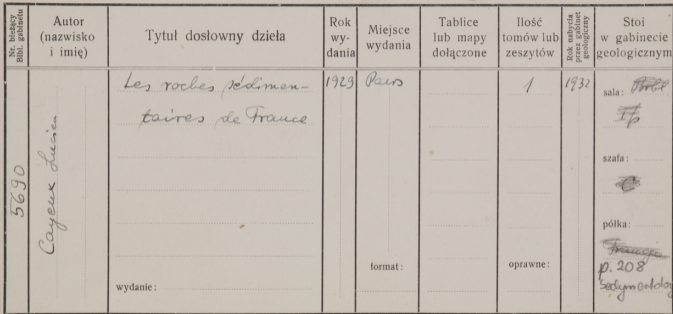 Nr. bieżący
Bibl. gabinetu
Autor
(nazwisko
i imię)
Tytuł dosłowny dzieła
Rok
wy-
dania
Miejsce
wydania
Tablice
lub mapy
dołączone
Ilość
tomów lub
zeszytów
Rok nabycia
przez gabinet
geologiczny
Stoi
w gabinecie
geologicznym
5690
Cayeux Lucien
Les roches sédimen-
taires de France
wydanie:
1929
Paris
format:
1
oprawne:
1932
sala:
szafa:
C
półka:
p. 208
Sedymentolog